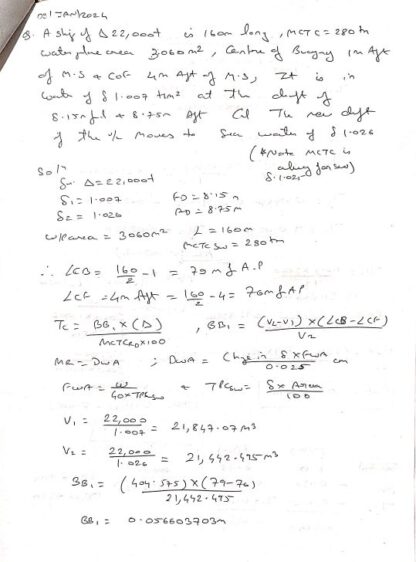 02/JAN/2024
Q. A ship of Δ 22,000t is 160m long, MCTC = 280tm
water plane area 3060m², Centre of Buoyancy 1m Aft
of M.S & CoF 4m Aft of M.S, It is in
water of δ 1.007 t/m³ at the draft of
8.15m fd & 8.75m Aft Cal The new draft
if the v/l moves to Sea water of δ 1.026
(*Note MCTC is
always for SW)
δ. 1.025
Soln
Δ = 22,000t
δ1 = 1.007 FD = 8.15m
δ2 = 1.026 AD = 8.75m
W/P area = 3060m² L = 160m
MCTCsw = 280tm
∴ LCB = 160/2 - 1 = 79m f A.P
LCF = 4m Aft = 160/2 - 4 = 76m f AP
Tc = BB1 × (Δ) / MCTCRD × 100 , BB1 = (V1-V2) × (LCB - LCF) / V2
MR = DWA ; DWA = Chge in δ × FWA / 0.025 cm
FWA = W / 40 × TPCsw & TPCsw = δ × Area / 100
V1 = 22,000 / 1.007 = 21,847.07m³
V2 = 22,000 / 1.026 = 21,442.495m³
BB1 = (404.575) × (79-76) / 21,442.495
BB1 = 0.056603703m